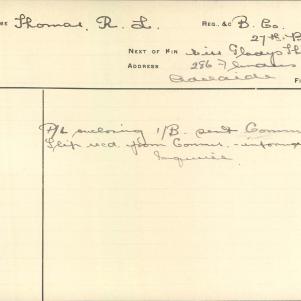 ME Thomas, R. L. REG. &C B. Co.
27th B
NEXT OF KIN Miss Gladys Th
ADDRESS 296 Flinders
Adelaide
F
P/L enclosing 1/B. sent Comm
Slip recd from Commt. - inform
Inquiries.